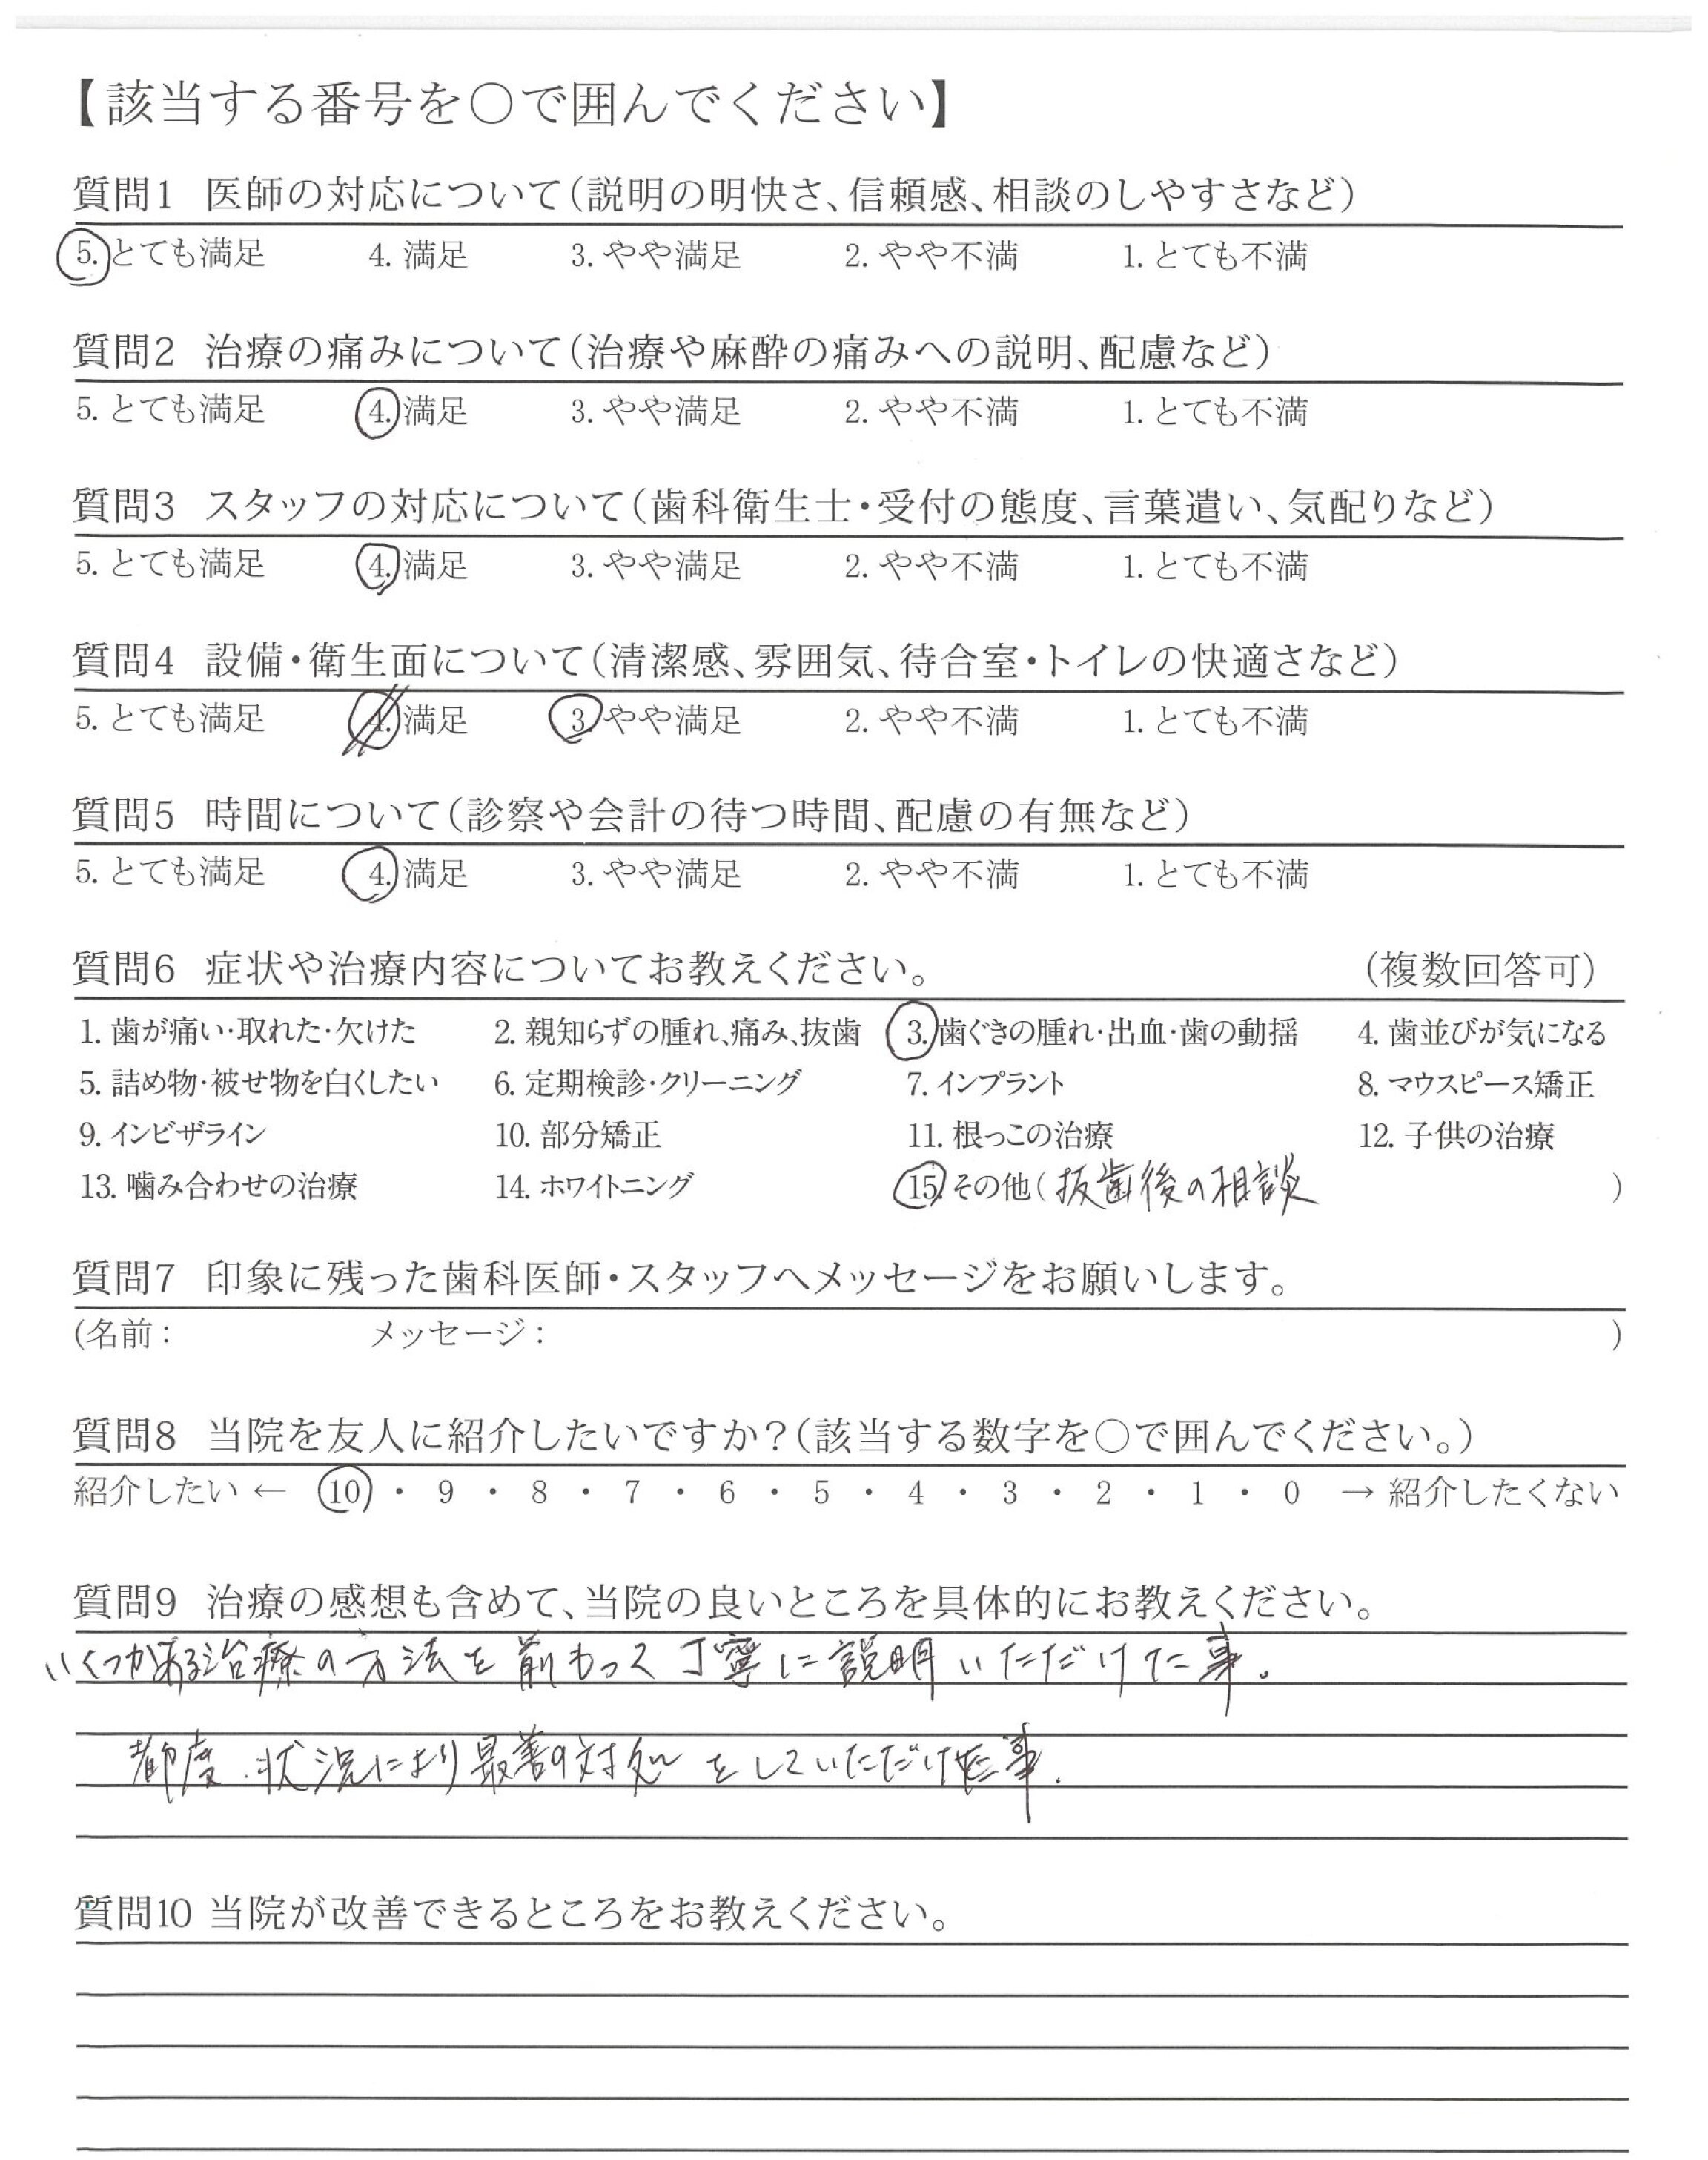 【該当する番号を○で囲んでください】
質問1 医師の対応について(説明の明快さ、信頼感、相談のしやすさなど)
5. とても満足 4. 満足 3. やや満足 2. やや不満 1. とても不満
質問2 治療の痛みについて(治療や麻酔の痛みへの説明、配慮など)
5. とても満足 4. 満足 3. やや満足 2. やや不満 1. とても不満
質問3 スタッフの対応について(歯科衛生士・受付の態度、言葉遣い、気配りなど)
5. とても満足 4. 満足 3. やや満足 2. やや不満 1. とても不満
質問4 設備・衛生面について(清潔感、雰囲気、待合室・トイレの快適さなど)
5. とても満足 4. 満足 3. やや満足 2. やや不満 1. とても不満
質問5 時間について(診察や会計の待つ時間、配慮の有無など)
5. とても満足 4. 満足 3. やや満足 2. やや不満 1. とても不満
質問6 症状や治療内容についてお教えください。 (複数回答可)
1. 歯が痛い・取れた・欠けた 2. 親知らずの腫れ、痛み、抜歯 3. 歯ぐきの腫れ・出血・歯の動揺 4. 歯並びが気になる
5. 詰め物・被せ物を白くしたい 6. 定期検診・クリーニング 7. インプラント 8. マウスピース矯正
9. インビザライン 10. 部分矯正 11. 根っこの治療 12. 子供の治療
13. 噛み合わせの治療 14. ホワイトニング 15. その他( 抜歯後の相談 )
質問7 印象に残った歯科医師・スタッフへメッセージをお願いします。
(名前： メッセージ： )
質問8 当院を友人に紹介したいですか？(該当する数字を○で囲んでください。)
紹介したい ← 10 ・ 9 ・ 8 ・ 7 ・ 6 ・ 5 ・ 4 ・ 3 ・ 2 ・ 1 ・ 0 → 紹介したくない
質問9 治療の感想も含めて、当院の良いところを具体的にお教えください。
いくつかある治療の方法を前もって丁寧に説明いただけた事。
都度、状況により最善の対処をしていただけた事。
質問10 当院が改善できるところをお教えください。